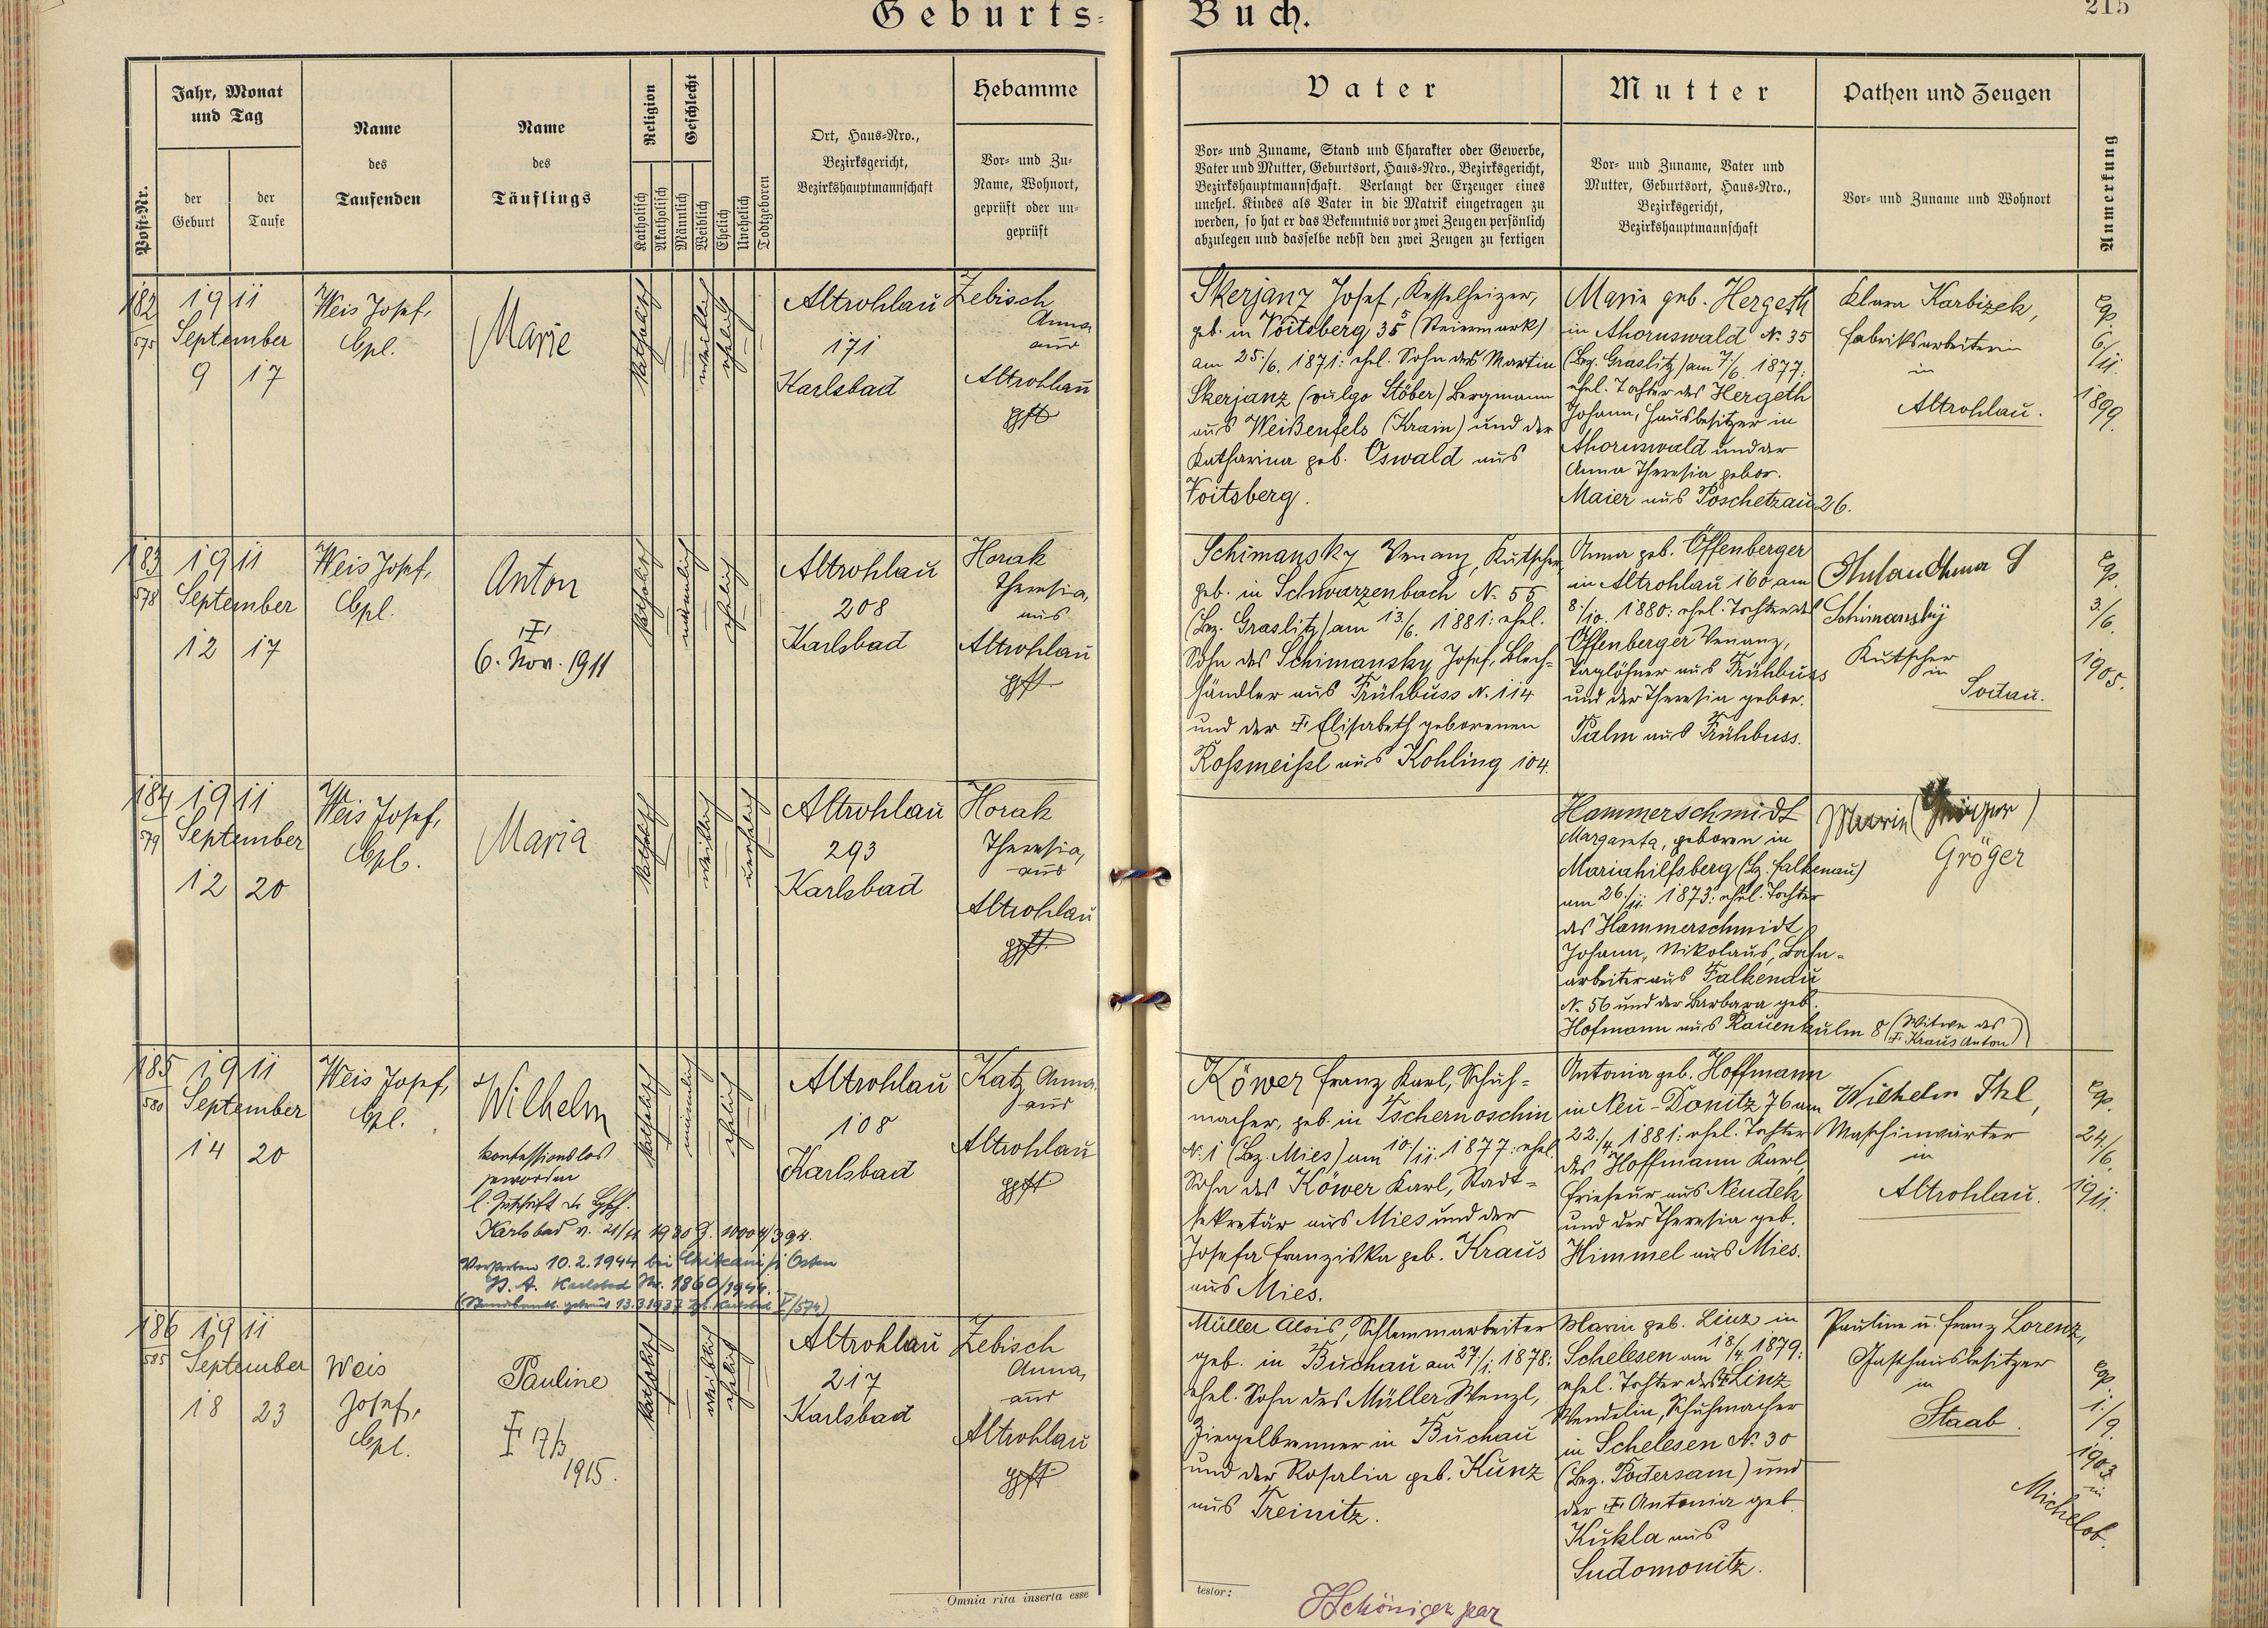 Geburts-
Buch.
215
Post-Nr.
Jahr, Monat
und Tag
der
Geburt
der
Taufe
Name
des
Taufenden
Name
des
Täuflings
Religion
Katholisch
Akatholisch
Geschlecht
Männlich
Weiblich
Ehelich
Unehelich
Todtgeboren
Ort, Haus-Nro.,
Bezirksgericht,
Bezirkshauptmannschaft
Hebamme
Vor- und Zu-
Name, Wohnort,
geprüft oder un-
geprüft
Vater
Vor- und Zuname, Stand und Charakter oder Gewerbe,
Vater und Mutter, Geburtsort, Haus-Nro., Bezirksgericht,
Bezirkshauptmannschaft. Verlangt der Erzeuger eines
unehel. Kindes als Vater in die Matrik eingetragen zu
werden, so hat er das Bekenntnis vor zwei Zeugen persönlich
abzulegen und dasselbe nebst den zwei Zeugen zu fertigen
Mutter
Vor- und Zuname, Vater und
Mutter, Geburtsort, Haus-Nro.,
Bezirksgericht,
Bezirkshauptmannschaft
Pathen und Zeugen
Vor- und Zuname und Wohnort
Anmerkung
182
575
1911
September
9 17
Weis Josef,
Cpl.
Marie
katholisch
weiblich
ehelich
Altrohlau
171
Karlsbad
Zebisch
Anna,
aus
Altrohlau
gpft
Skerjanz Josef, Kesselheizer,
geb. in Voitsberg 35 (Steiermark)
am 25./6. 1871: ehel. Sohn des Martin
Skerjanz (vulgo Stöber) Bergmann
aus Weißenfels (Krain) und der
Katharina geb. Oswald aus
Voitsberg.
Marie geb. Hergeth
in Ahornswald N. 35
(Bez. Graslitz) am 7./6. 1877:
ehel. Tochter des Hergeth
Johann, Hausbesitzer in
Ahornswald und der
Anna Theresia gebor.
Maier aus Poschetzau 26.
Klara Karbizek,
Fabriksarbeiterin
in
Altrohlau.
cop.
6./11.
1899.
183
578
1911
September
12 17
Weis Josef,
Cpl.
Anton
6. Nov. 1911
katholisch
männlich
ehelich
Altrohlau
208
Karlsbad
Horak
Theresia,
aus
Altrohlau
gpft.
Schimansky Venanz, Kutscher,
geb. in Schwarzenbach N. 55
(Bez. Graslitz) am 13./6. 1881: ehel.
Sohn des Schimansky Josef, Blech-
händler aus Frühbuss N. 114
und der † Elisabeth geborenen
Rossmeissl aus Kohling 104.
Anna geb. Offenberger
in Altrohlau 160 am
8./10. 1880: ehel. Tochter des
Offenberger Venanz,
Taglöhner aus Frühbuss
und der Theresia gebor.
Palm aus Frühbuss.
Schimansky
Kutscher
in
Sodau.
cop.
3./6.
1905.
184
579
1911
September
12 20
Weis Josef,
Cpl.
Maria
katholisch
weiblich
unehelich
Altrohlau
293
Karlsbad
Horak
Theresia,
aus
Altrohlau
gpft.
Hammerschmidt
Margareta, geboren in
Mariahilfsberg (Bz. Falkenau)
am 26./11. 1873: ehel. Tochter
des Hammerschmidt
Johann, Nikolaus, Bahn-
arbeiter aus Falkenau
N. 56 und der Barbara geb.
Hofmann aus Rauenkulm 8 (Witwe des
† Kraus Anton)
Marie
Gröger
185
580
1911
September
14 20
Weis Josef,
Cpl.
Wilhelm
konfessionslos
geworden
Karlsbad v. 21/11 1930 Z. 10004/394.
Verstorben 10.2.1944 bei Osten
S. A. Karlsbad Nr. 1860/1944.
katholisch
männlich
ehelich
Altrohlau
108
Karlsbad
Katz Anna,
aus
Altrohlau
gpft.
Köwer Franz Karl, Schuh-
macher, geb. in Tschernoschin
N. 1 (Bez. Mies) am 10./11. 1877: ehel.
Sohn des Köwer Karl, Stadt-
sekretär aus Mies und der
Josefa Franziska geb. Kraus
aus Mies.
Antonia geb. Hoffmann
in Neu-Donitz 76 am
22./4. 1881: ehel. Tochter
des Hoffmann Karl,
Friseur aus Neudek
und der Theresia geb.
Himmel aus Mies.
Wilhelm Ihl,
Maschinwärter
in
Altrohlau.
cop.
24/6.
1911.
186
585
1911
September
18 23
Weis
Josef,
Cpl.
Pauline
† 17/3
1915.
katholisch
weiblich
ehelich
Altrohlau
217
Karlsbad
Zebisch
Anna,
aus
Altrohlau
gpft.
Müller Alois, Schlemmarbeiter
geb. in Buchau am 27./1. 1878:
ehel. Sohn des Müller Wenzl,
Ziegelbrenner in Buchau
und der Rosalia geb. Kunz
aus Treinitz.
Marie geb. Linz in
Schelesen am 18./4. 1879:
ehel. Tochter des † Linz
Wendelin, Schuhmacher
in Schelesen N. 30
(Bez. Podersam) und
der † Antonia geb.
Kukla aus
Sudomonitz.
Pauline u. Franz Lorenz,
Gasthausbesitzer
in
Staab.
cop.
1./9.
1903
in
Michelob.
Omnia rita inserta esse
testor: